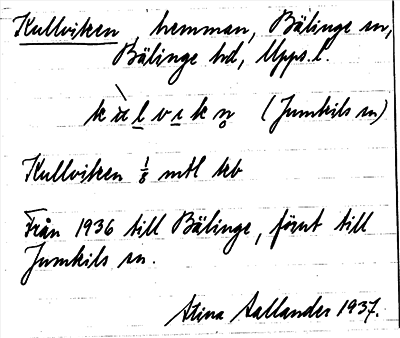 Kullviken, hemman, Bälinge sn,
Bälinge hd, Upps. l.
(Jumkils sn)
Kullviken 1/8 mtl krb
Från 1936 till Bälinge, förut till
Jumkils sn.
Stina Aallander 1937.